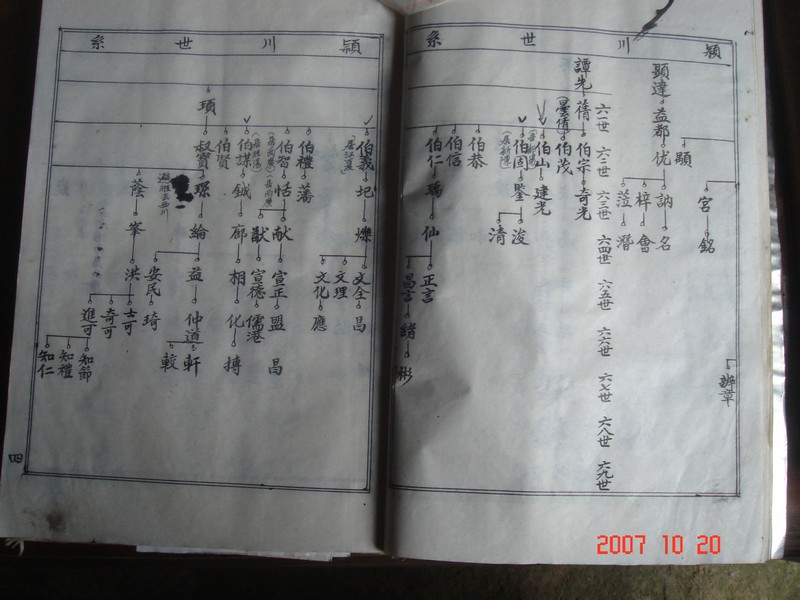 潁川世系
顯
宮
銘
辦章
顯達
益都
优
訥
名
梓
會
涖
潛
六一世
六二世
六三世
六四世
六五世
六六世
六七世
六八世
六九世
譚光
蒨
伯宗
奇光
伯茂
伯山
建光
伯固
鑒
浚
清
伯恭
伯信
伯仁
瑀
仙
正言
昌言
緒
彬
潁川世系
伯義
圯
爍
文全
昌
文理
文化
應
伯禮
藩
伯智
恬
献
宣正
盟
昌
猷
宣德
儒港
伯謀
鉞
廊
相
化
搏
伯賢
叔寶
琛
綸
益
仲道
軒
較
安民
琦
蔭
峯
洪
士可
奇可
進可
知節
知禮
知仁
頊
四
2007 10 20